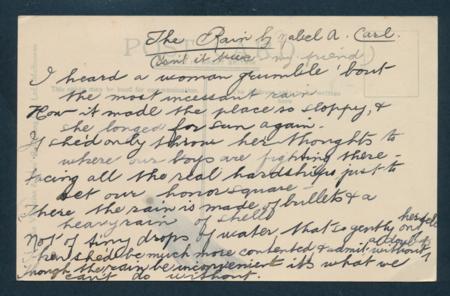 The Rain by Mabel A. Carl.
POST CARD
(Isn't it true my friend)
I heard a woman grumble 'bout
the most incessant rain
How it made the place so sloppy, &
she longed for sun again.
If she'd only throw her thoughts to
where our boys are fighting there
Facing all the real hardships just to
set our honor square -
There the rain is made of bullets & a
heavy rain of shells
Not of tiny drops of water, that so gently
Then she'd be much more contented & admit without
Though the rain be inconvenient its what we
can't do without.